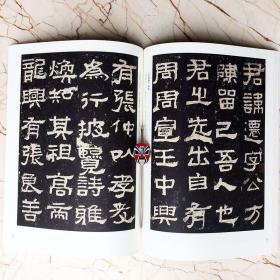 君諱遷字公方
陳留己吾人也
君之先出自有
周周宣王中興
有張仲以孝友
為行披覽詩雅
煥知其祖高帝
龍興有張良善